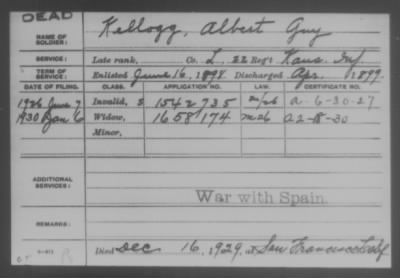 DEAD
NAME OF SOLDIER: Kellogg, Albert Guy
SERVICE: Late rank, Co. L, 22 Reg't Kans. Inf.
TERM OF SERVICE: Enlisted June 16, 1898. Discharged Apr. , 1899.
DATE OF FILING. CLASS. APPLICATION NO. LAW. CERTIFICATE NO.
1926 June 7 Invalid, S 1542735 a-6-30-27
1930 Jan 6 Widow, 1658174 m26 a2-18-30
Minor,
ADDITIONAL SERVICES:
War with Spain.
REMARKS:
Died Dec 16, 1929, at San Francisco Calif